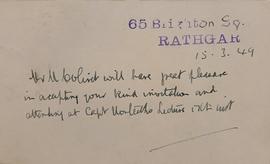 65 Brighton Sq.
RATHGAR
15.3.49
Mr M will have great pleasure
in accepting your kind invitation and
attending at Capt Monteith's Lecture inst